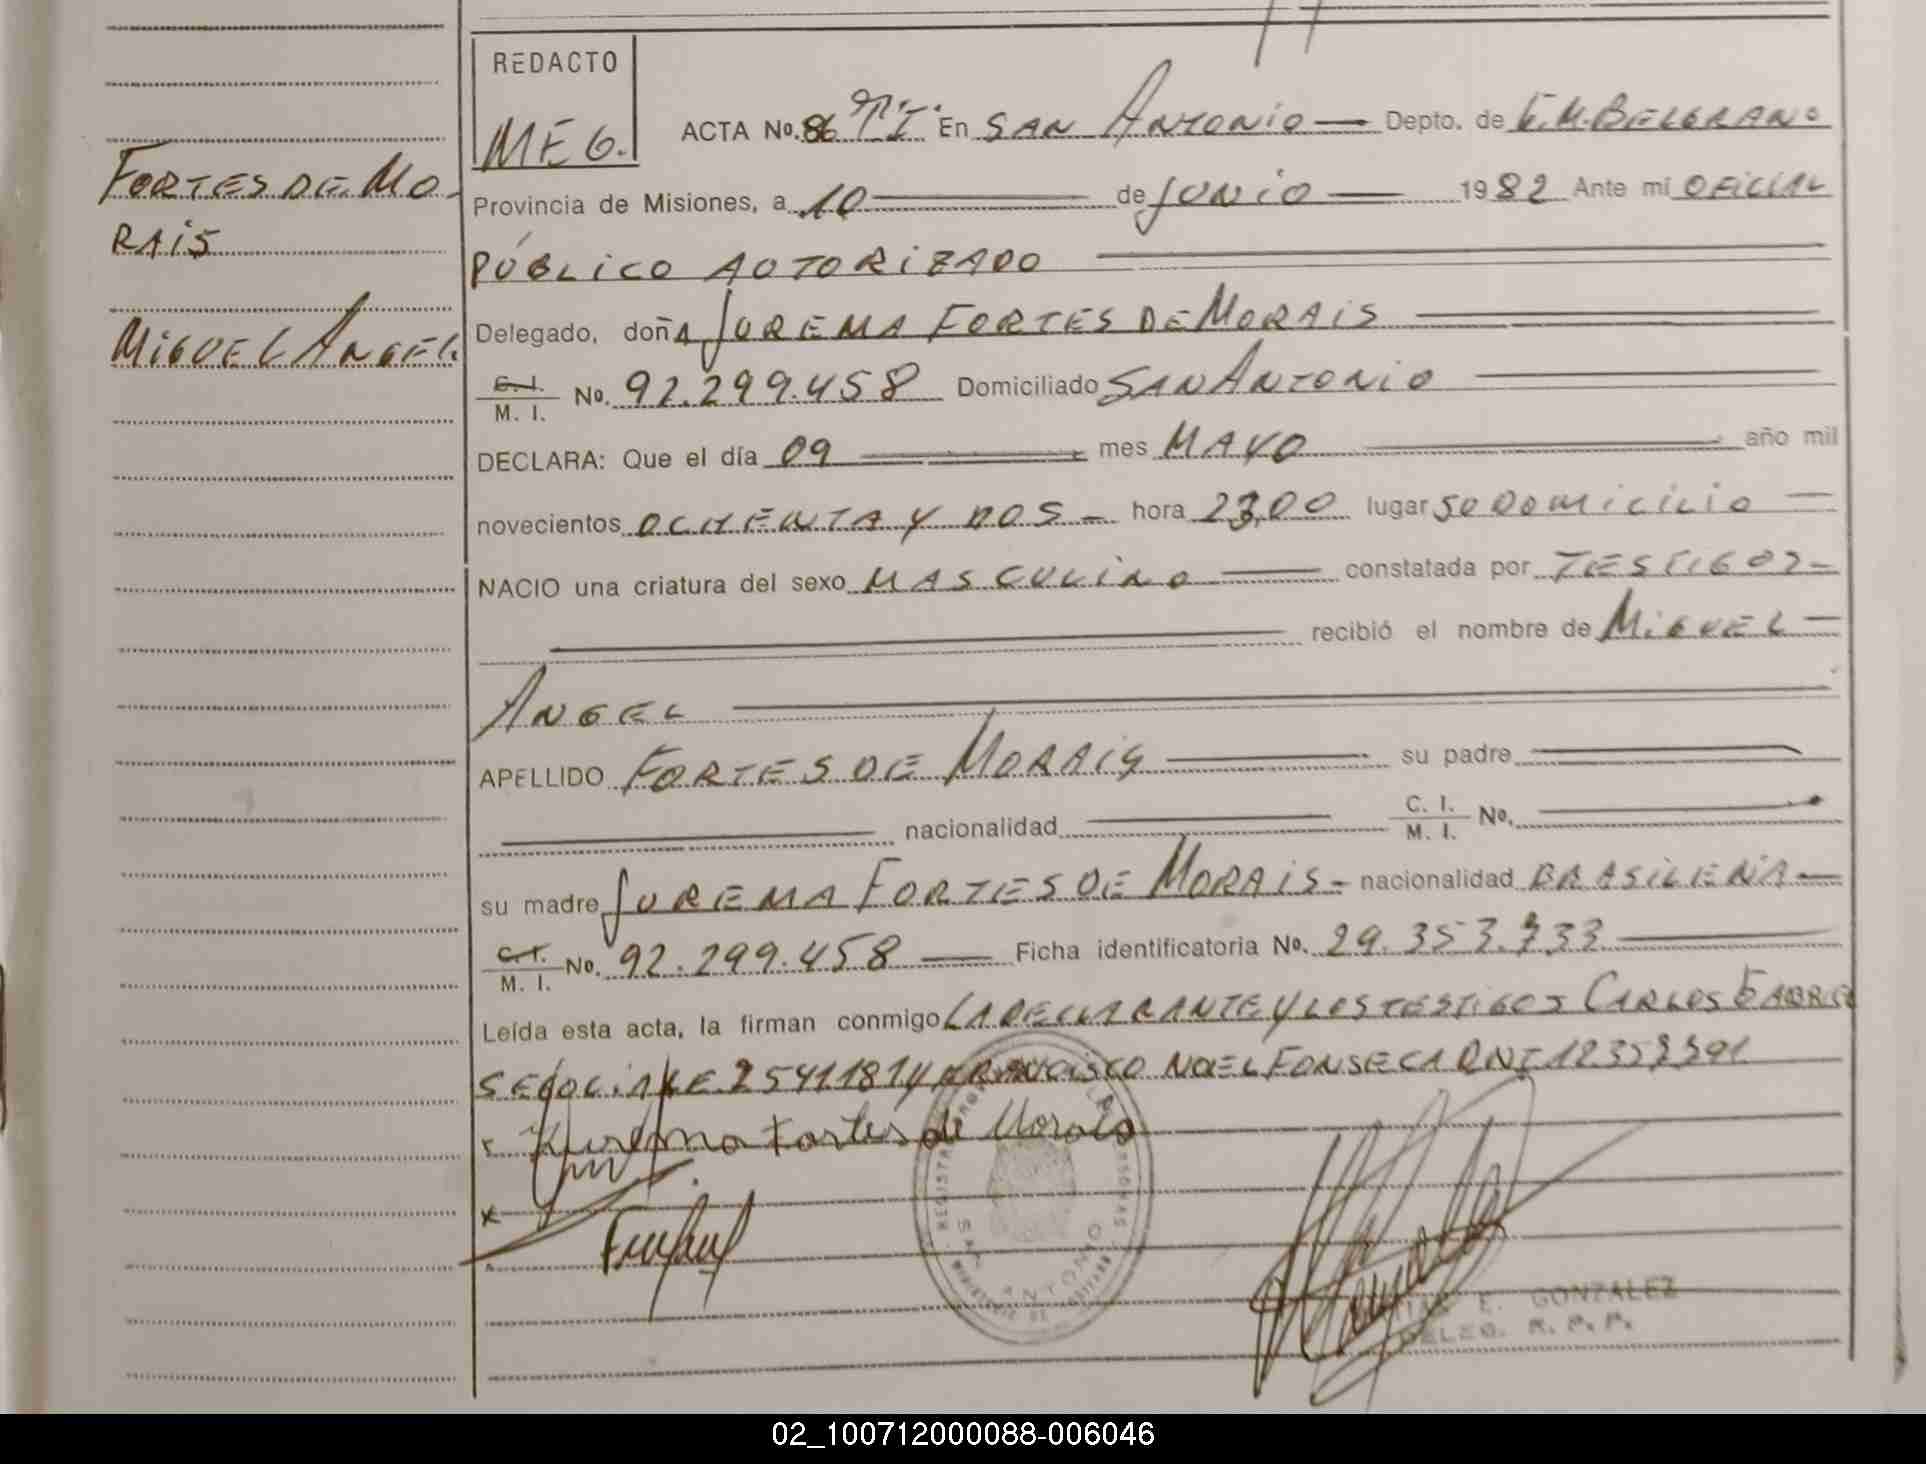 REDACTO
MEG.
ACTA No. 86 T:I. En SAN ANTONIO Depto. de G.M.BELGRANO
FORTES DE MO-
RAIS
MIGUEL ANGEL.
Provincia de Misiones, a 10 de JUNIO 1982 Ante mí OFICIAL
PÚBLICO AUTORIZADO
Delegado, doñA JUREMA FORTES DE MORAIS
C. I. / M. I. No. 92.299.458 Domiciliado SAN ANTONIO
DECLARA: Que el día 09 mes MAYO año mil
novecientos OCHENTA Y DOS - hora 23,00 lugar SU DOMICILIO
NACIO una criatura del sexo MASCULINO constatada por TESTIGOS-
recibió el nombre de MIGUEL
ANGEL
APELLIDO FORTES DE MORAIS su padre
nacionalidad C. I. / M. I. No.
su madre JUREMA FORTES DE MORAIS- nacionalidad BRASILEÑA
C. I. / M. I. No. 92.299.458 Ficha identificatoria No. 29.353.733
Leída esta acta, la firman conmigo LA DECLARANTE Y LOS TESTIGOS CARLOS
LE 2541181 Y FRANCISCO NOEL FONSECA DNI
x Jurema Fortes de Morais
x
SAN ANTONIO
E. GONZALEZ
DELEG. R. P. P.
02_100712000088-006046